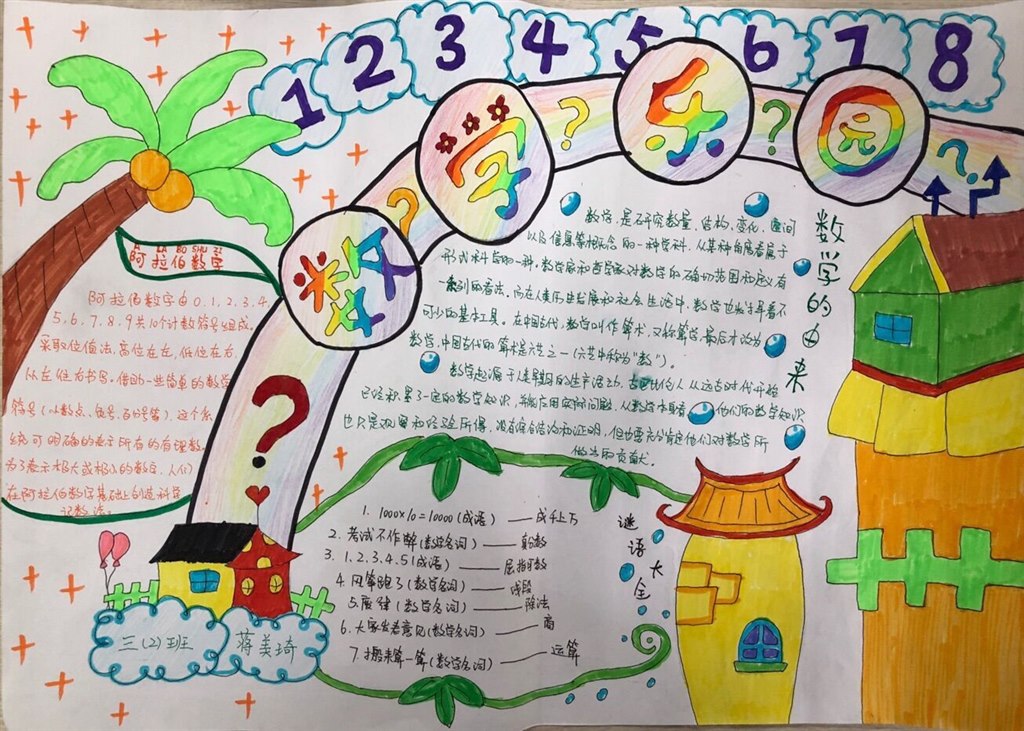 1 2 3 4 5 6 7 8
数学乐园
? ? ? ? ?
A LA BO SHU ZI
阿拉伯数字
阿拉伯数字由0.1.2.3.4
5.6.7.8.9共10个计数符号组成。
采取位值法,高位在左,低位在右,
从左往右书写。借助一些简单的数学
符号(小数点、负号、百分号等),这个系
统可明确的表示所有的有理数。
为了表示极大或极小的数字,人们
在阿拉伯数字基础上创造科学
记数法。
数学的由来
数学,是研究数量、结构、变化、空间
以及信息等概念的一种学科,从某种角度看属于
形式科学的一种,数学家和哲学家对数学的确切范围和定义有
一系列的看法,而在人类历史发展和社会生活中,数学也发挥着不
可少的基本工具。在中国古代,数学叫作算术,又称算学,最后才改为
数学,中国古代的算术是六艺之一(六艺中称为"数")。
数学起源于人类早期的生产活动,古巴比伦人从远古时代开始
已经积累了一定的数学知识,并能应用实际问题,从数学本身看他们的数学知识
也只是观察和经验所得,没有综合结论和证明,但也要充分肯定他们对数学所
做出的贡献。
谜语大全
1. 1000×10=10000(成语) ——成千上万
2. 考试不作弊(数学名词) ——真数
3. 1.2.3.4.5!(成语) ——屈指可数
4. 风筝跑了(数学名词) ——线段
5. 废律(数学名词) ——除法
6. 大家发表意见(数学名词) ——商
7. 搬来算一算(数学名词) ——运算
三(2)班
蒋美琦